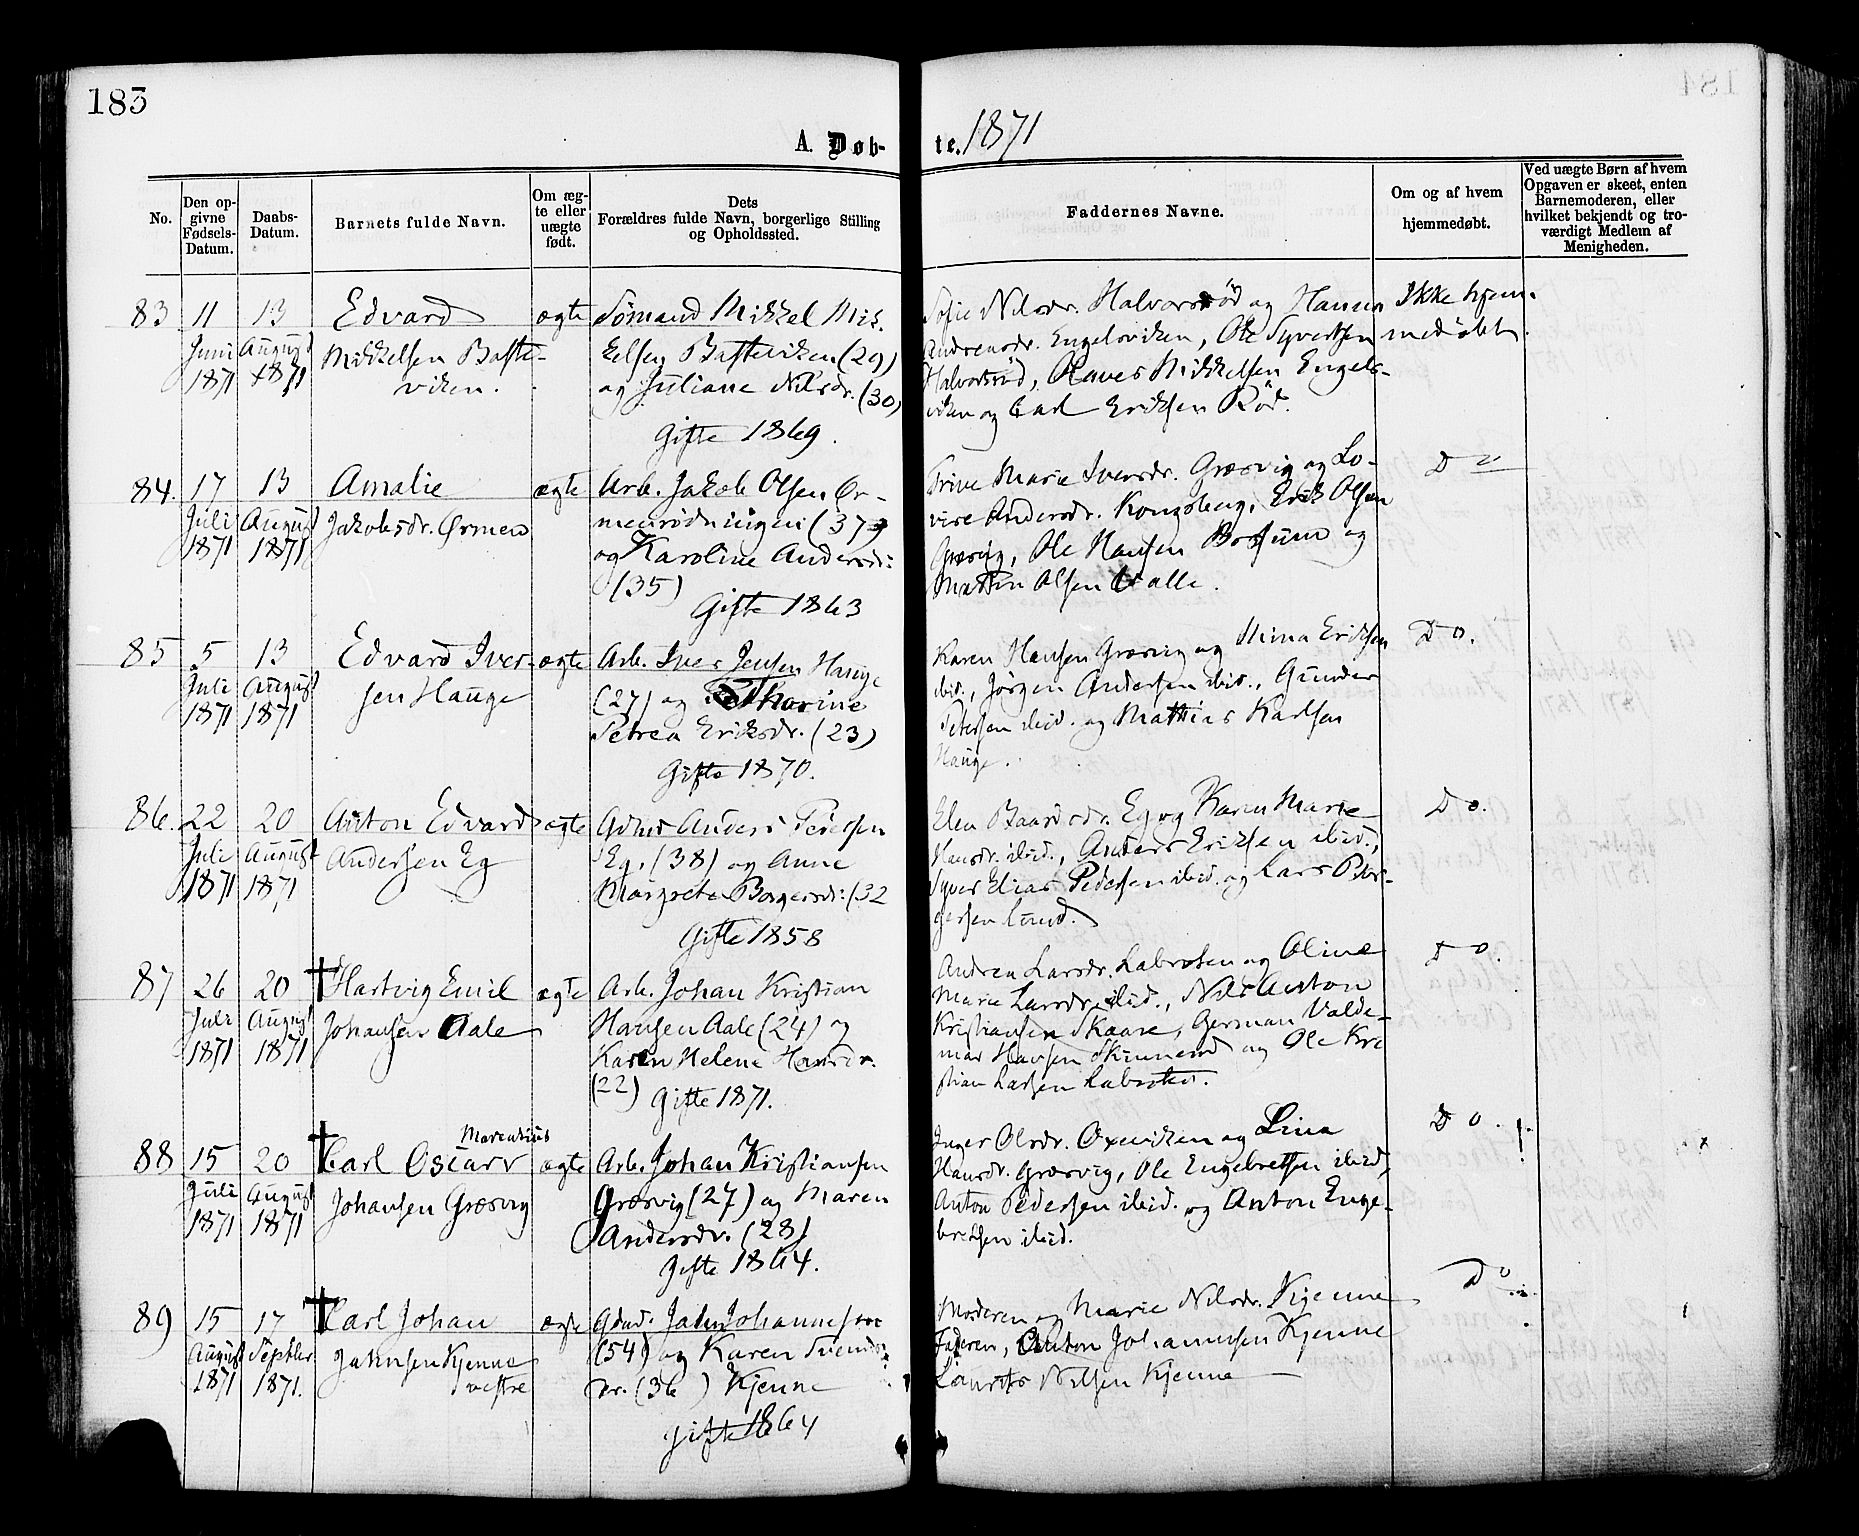 183
A. Døb-
te. 1871
No.
Den op-
givne
Fødsels-
Datum.
Daabs-
Datum.
Barnets fulde Navn.
Om æg-
te eller
uægte
født.
Dets
Forældres fulde Navn, borgerlige Stilling
og Opholdssted.
Faddernes Navne.
Om og af hvem
hjemmedøbt.
Ved uægte Børn af hvem
Opgaven er skeet, enten
Barnemoderen, eller
hvilket bekjendt og tro-
værdigt Medlem af
Menigheden.
83
11
Juni
1871
13
August
1871
Edvard
Mikkelsen Baste-
viken.
ægte
Sømand Mikkel Mik-
kelsen Basteviken (29)
og Juliane Nilsdr. (30)
Gifte 1869.
Sofie Nilsdr. Halvorsrød og Hanna
Andreasdr. Engelsviken, Ole Syvertsen
Halvorsrød, Olaves Mikkelsen Engels-
viken og Carl Eriksen Rød.
Ikke hjem-
medøbt.
84.
17
Juli
1871
13
August
1871
Amalie
Jakobsdr. Ørmen
ægte
Arb. Jakob Olsen Ør-
menrødningen (37)
og Karoline Andersdr:
(35)
Gifte 1863
Trine Marie Iversdr. Græsvig og Lo-
vise Andersdr. Kongsberg, Erik Olsen
Græsvig, Ole Hansen Bossum og
Martin Olsen Valle.
Do
85
5
Juli
1871
13
August
1871
Edvard Iver-
sen Hauge
ægte
Arb. Iver Jensen Hauge
(27) og Katharine
Petrea Eriksdr. (23)
Gifte 1870.
Karen Hansen Græsvig og Mina Eriksen
ibid., Jørgen Andersen ibid., Gunder
Petersen ibid. og Mathias Karlsen
Hauge.
Do.
86.
22
Juli
1871
20
August
1871
Anton Edvard
Andersen Eg
ægte
Gdmd Anders Pedersen
Eg, (38) og Anne
Margrete Borgersdr: (32
Gifte 1858
Elen Baardsdr. Eg og Karen Marie
Hansdr. ibid., Anders Eriksen ibid.,
Syver Elias Pedersen ibid. og Lars Bor-
gersen Lund.
Do.
87
26
Juli
1871
20
August
1871
Hartvig Emil
Johansen Aale
ægte
Arb. Johan Kristian
Hansen Aale (24) og
Karen Helene Hansdr.
(22)
Gifte 1871.
Andrea Larsdr. Labroten og Oline
Marie Larsdr. ibid., Nils Anton
Kristiansen Skaare, German Valde-
mar Hansen Skinnerød og Ole Kri
stian Larsen Labroten.
Do.
88
15
Juli
1871
20
August
1871
Marentius
Carl Oscarv
Johansen Græsvig
ægte
Arb. Johan Kristiansen
Græsvig (27) og Maren
Andersdr. (28)
Gifte 1864.
Inger Olsdr. Oxeviken og Lina
Hansdr. Græsvig, Ole Engebretsen ibid.,
Anton Pedersen ibid. og Anton Enge-
bretsen ibid.
Do.
89
15
August
1871
17
Septbr
1871.
Carl Johan
Jahnsen Kjenne
vestre
ægte
Gdmd. Jahn Johannesen
(54) og Karen Svends-
dr. (36) Kjenne
Gifte 1864
Moderen og Marie Nilsdr. Kjenne
Faderen, Anton Johannesen Kjenne
Laurits Nilsen Kjenne
Do.